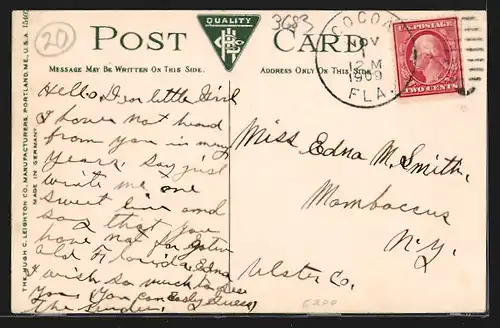 POST CARD
QUALITY
3683
20
MESSAGE MAY BE WRITTEN ON THIS SIDE.
ADDRESS ONLY ON THIS SIDE.
COCOA
NOV
12 M
1909
FLA.
U.S. POSTAGE
TWO CENTS
THE HUGH C. LEIGHTON CO., MANUFACTURERS, PORTLAND, ME., U.S.A.
MADE IN GERMANY
Hello Dear little Girl
I have not heard
from you in many
years, say just
write me one
sweet line and
said that you
have not forgotten
old Florida Edna
I wish so much to see
you. You can easly guess
the sender.
Miss Edna M. Smith,
Mombaccus
N.Y.
Ulster Co.